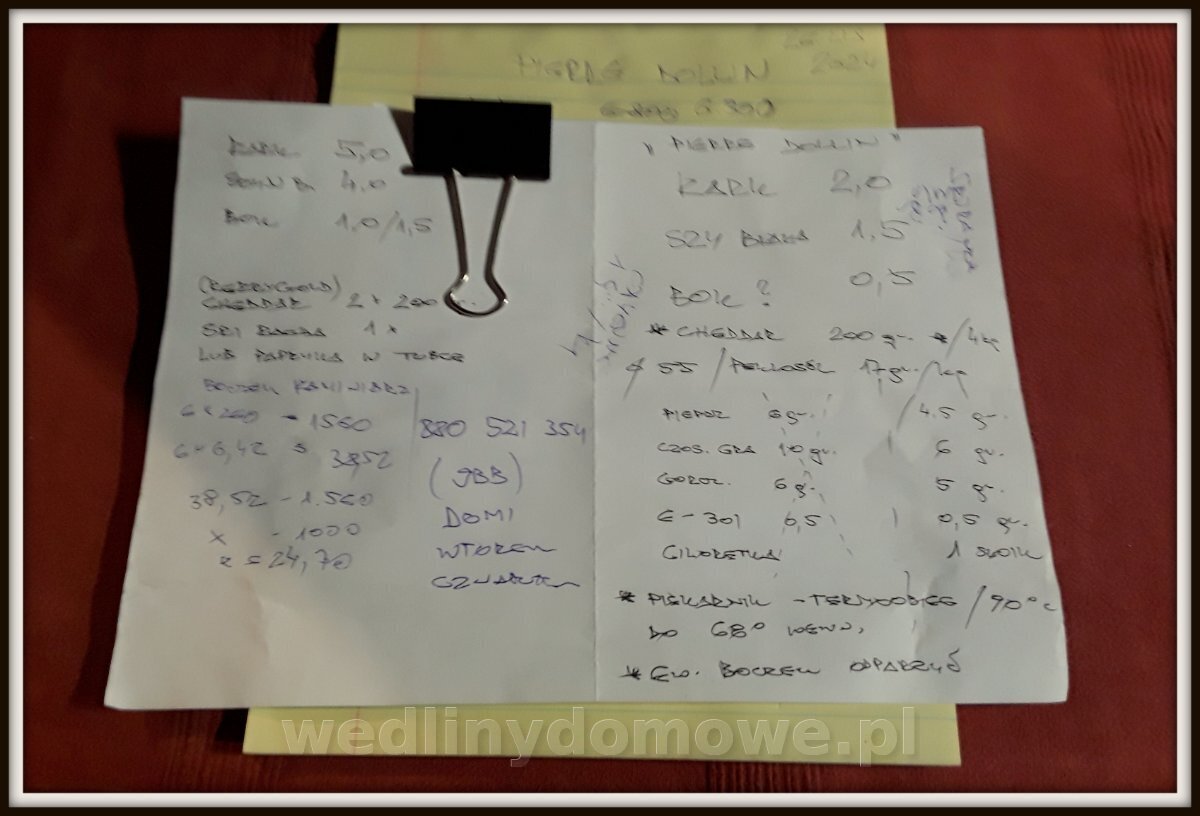 2024
DOLLIN
KARK 5,0
4.0
BOK 1,0/1,5
(KERRYGOLD)
CHEDDAR 2 x 200
SRI RACHA 1 x
LUB PAPRYKA W TUBCE
BOCZEK KAMINIARZ
6 x 260 = 1560
6 x 6,42 = 38,52
38,52 - 1.560
x - 1000
x = 24,70
880 521 354
(JBB)
DOMI
WTOREK
CZWARTEK
"PIERRE DOLLIN"
KARK 2,0
SZY BIAŁA 1,5
BOK ? 0,5
* CHEDDAR 200 gr. /4kg
PEKLOSÓL 17gr. /kg
PIEPRZ 6gr. 4.5 gr.
CZOS. GRA 10 gr. 6 gr.
GORCZ. 6 gr. 5 gr.
E-301 0,5 0,5 gr.
GILORETKA 1 SŁOIK
* PIEKARNIK - TERMOOBIEG /90°C
DO 68° WEWN.
* EW. BOCZEK ODPARZYĆ
wedlinydomowe.pl